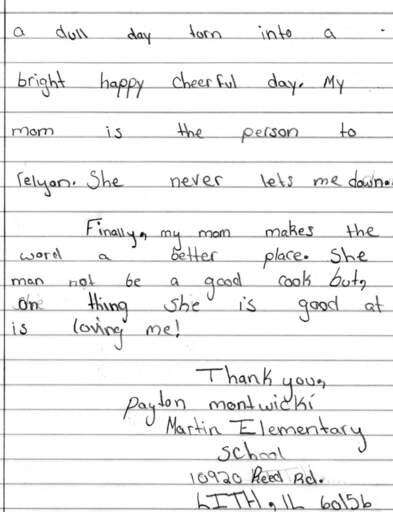 a dull day torn into a
bright happy cheerful day. My
mom is the person to
relyon. She never lets me down.
Finally, my mom makes the
word a better place. She
man not be a good cook but,
one thing she is good at
is loving me!
Thank you,
Payton montwicki
Martin Elementary
School
10920 Reed Rd.
LITH, IL 60156